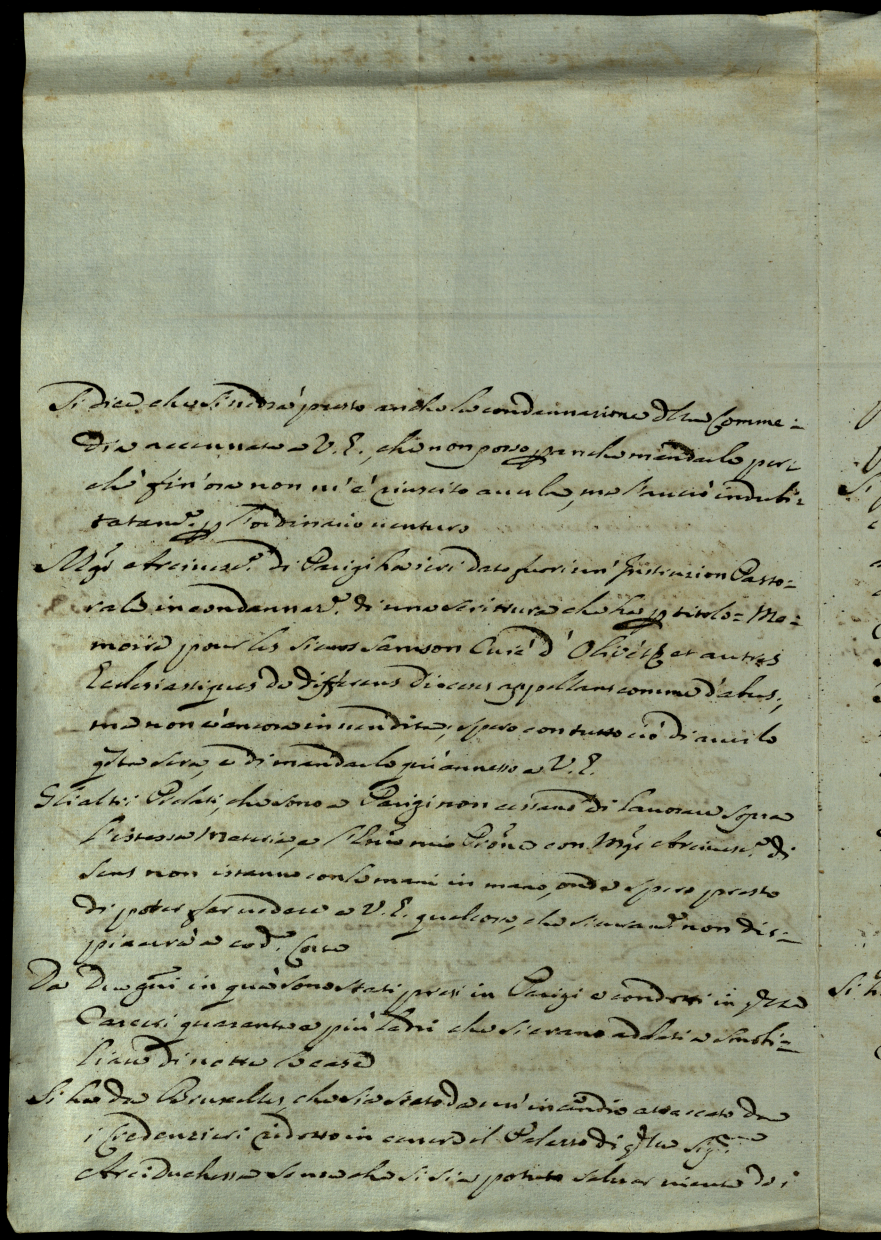 Si dice che si uedrà presto anche la condannazione dlla Comme=
dia accennata a V. E., che non posso p anche mandarle per=
che fin'ora non m'è riuscito auerla, ma lo farò indubi=
tatam.e p l'ordinario uenturo
Mgr Arciuesc.o di Parigi ha ieri dato fuori un' Instruzion Pasto=
rale in condannaz.e di una scrittura che ha p titolo = Me=
moire pour les Sieurs Samson Curé d' Olivétz et autres
Ecclesiastiques de differens Dioceses appellans comme d'abus,
ma non è ancora in uendita, spero con tutto ciò di auerlo
qsta sera, e di mandarlo qui annesso a V. E.
Gli altri Prelati, che sono a Parigi non cessano di lauorare sopra
l'istessa materia, e con Mgr Arciuesc.o di
Sens non istanno con le mani in mano, onde spero presto
di poter far uedere a V. E. qualcosa, che sicuram.e non dis=
piacerà a cod.a Corte
Da due gni in quà sono stati presi in Parigi e condotti in qste
Carceri quaranta e più ladri che si erano addati a
di notte le case
Si ha da Bruxelles, che sia stato da un' incendio attaccato da
i Credenzieri ridotto in cenere il Palazzo di qlla Sig.ra
Arciduchessa senza che si sia potuto saluar niente de i